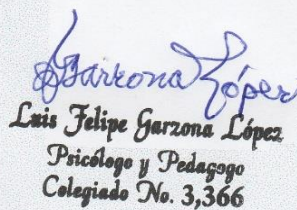 Garzona López
Luis Felipe Garzona López
Psicólogo y Pedagogo
Colegiado No. 3,366